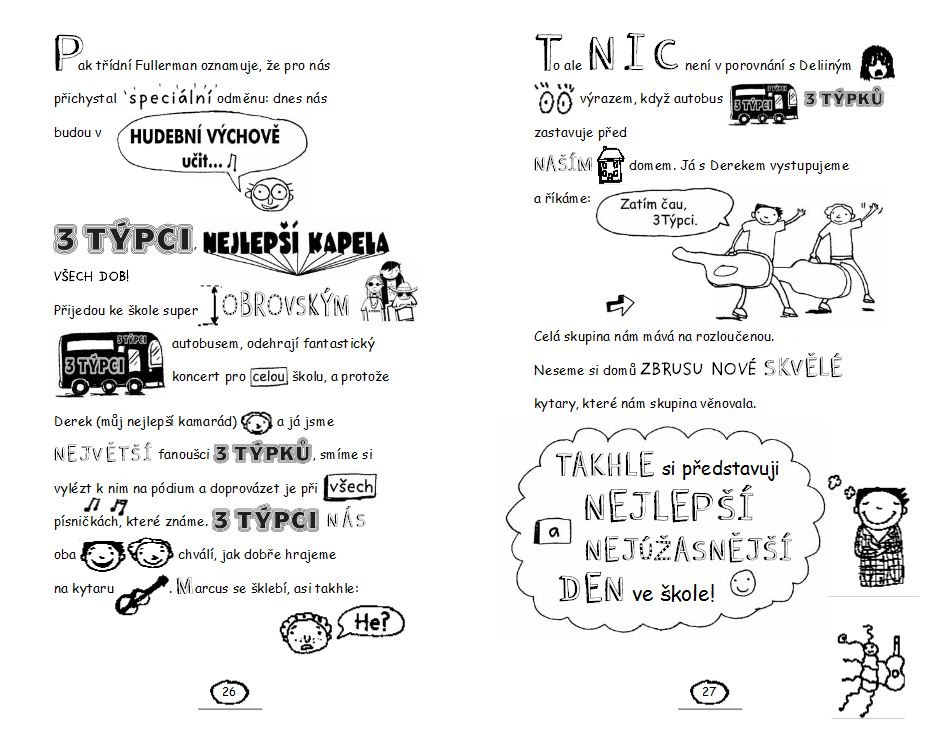 Pak třídní Fullerman oznamuje, že pro nás
přichystal speciální odměnu: dnes nás
budou v HUDEBNÍ VÝCHOVĚ
učit...
3 TÝPCI, NEJLEPŠÍ KAPELA
VŠECH DOB!
Přijedou ke škole super OBROVSKÝM
3 TÝPCI
3 TÝPCI
autobusem, odehrají fantastický
koncert pro celou školu, a protože
Derek (můj nejlepší kamarád) a já jsme
NEJVĚTŠÍ fanoušci 3 TÝPKŮ, smíme si
vylézt k nim na pódium a doprovázet je při všech
písničkách, které známe. 3 TÝPCI NÁS
oba chválí, jak dobře hrajeme
na kytaru. Marcus se šklebí, asi takhle:
He?
26
To ale NIC není v porovnání s Deliiným
výrazem, když autobus 3 TÝPCI 3 TÝPKŮ
zastavuje před
NAŠÍM domem. Já s Derekem vystupujeme
a říkáme: Zatím čau,
3Týpci.
Celá skupina nám mává na rozloučenou.
Neseme si domů ZBRUSU NOVÉ SKVĚLÉ
kytary, které nám skupina věnovala.
TAKHLE si představuji
NEJLEPŠÍ
a
NEJÚŽASNĚJŠÍ
DEN ve škole!
27